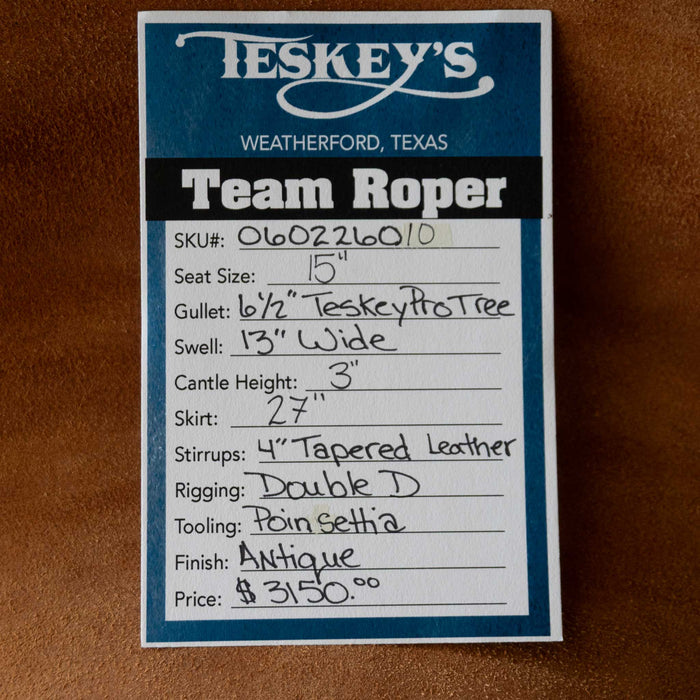 TESKEY'S
WEATHERFORD, TEXAS
Team Roper
SKU#: 0602226010
Seat Size: 15"
Gullet: 6 1/2" TeskeyProTree
Swell: 13" Wide
Cantle Height: 3"
Skirt: 27"
Stirrups: 4" Tapered Leather
Rigging: Double D
Tooling: Poinsettia
Finish: Antique
Price: $3150.00